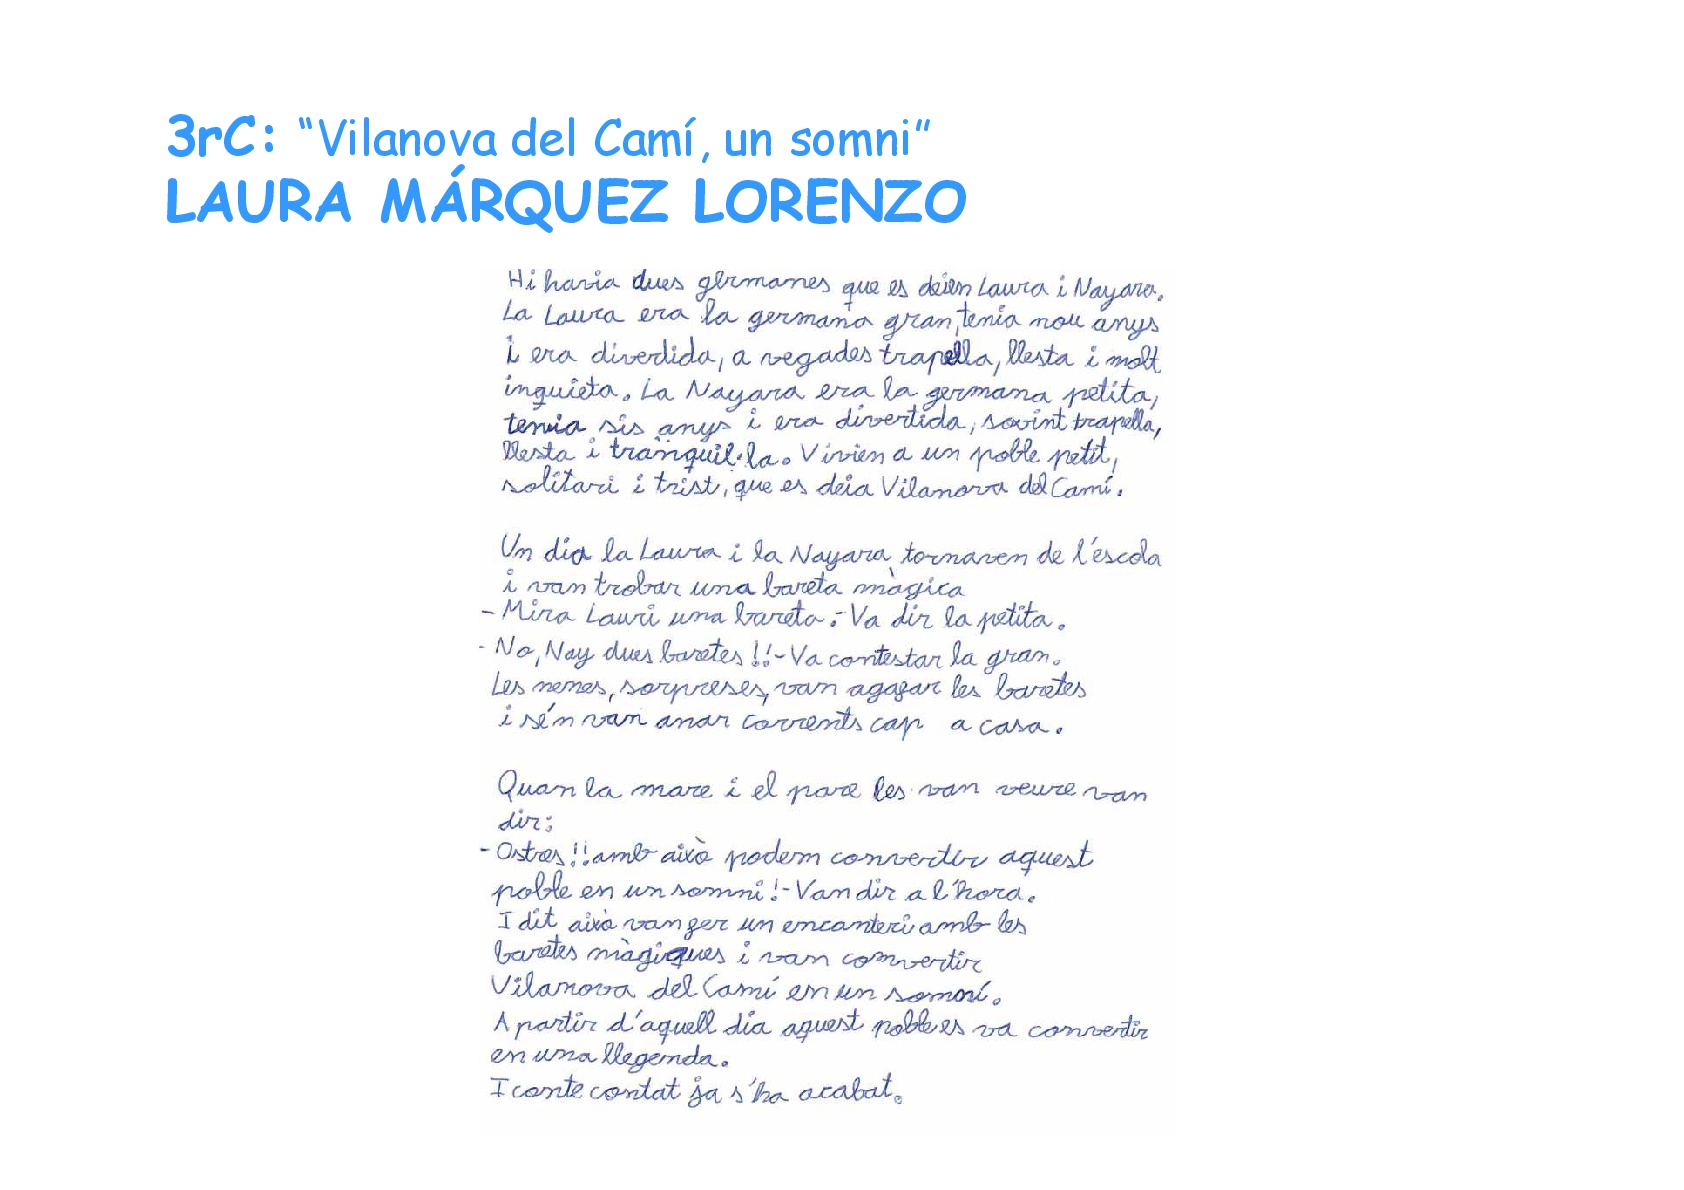 3rC: “Vilanova del Camí, un somni”
LAURA MÁRQUEZ LORENZO
Hi havia dues germanes que es deien Laura i Nayara.
La Laura era la germana gran, tenia nou anys
i era divertida, a vegades trapella, llesta i molt
inquieta. La Nayara era la germana petita,
tenia sis anys i era divertida, sovint trapella,
llesta i tranquil·la. Vivien a un poble petit,
solitari i trist, que es deia Vilanova del Camí.
Un dia la Laura i la Nayara tornaven de l'escola
i van trobar una bareta màgica
- Mira Lauri una bareta.- Va dir la petita.
- No, Nay dues baretes!!- Va contestar la gran.
Les nenes, sorpreses, van agafar les baretes
i sé'n van anar corrents cap a casa.
Quan la mare i el pare les van veure van
dir:
- Ostres!! amb això podem convertir aquest
poble en un somni!- Van dir a l'hora.
I dit això van fer un encanteri amb les
baretes màgiques i van convertir
Vilanova del Camí en un somni.
A partir d'aquell dia aquest poble es va convertir
en una llegenda.
I conte contat ja s'ha acabat.